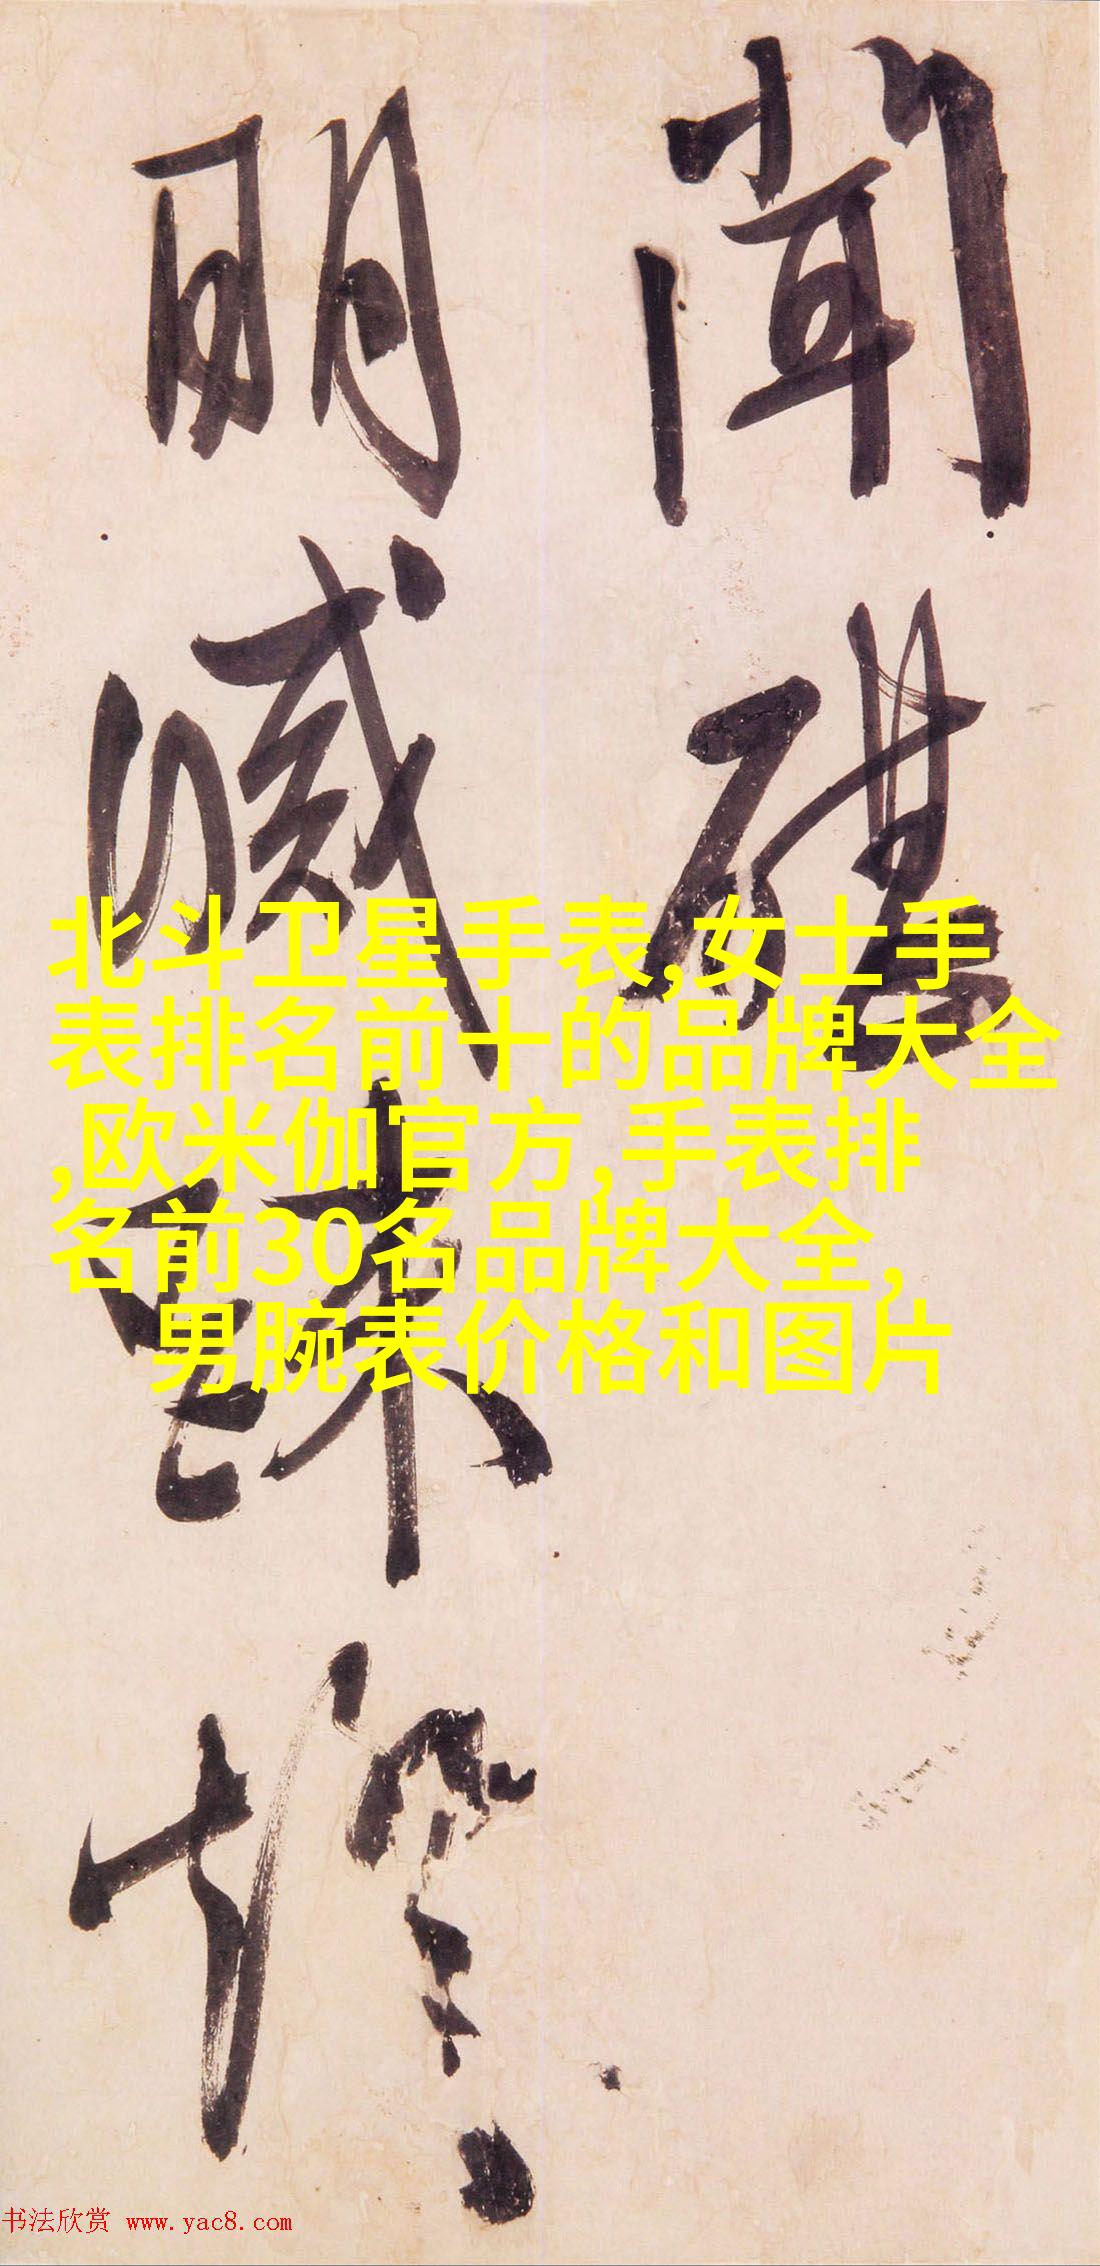 聞碪
明滅踈燈
北斗卫星手表,女士手
表排名前十的品牌大全
,欧米伽官方,手表排
名前30名品牌大全,
男腕表价格和图片
书法欣赏 www.yac8.com